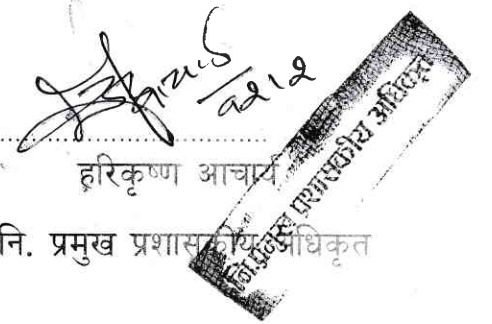 १२।२
हरिकृष्ण आचार्य
नि. प्रमुख प्रशासकीय अधिकृत
नि. प्रमुख प्रशासकीय अधिकृत